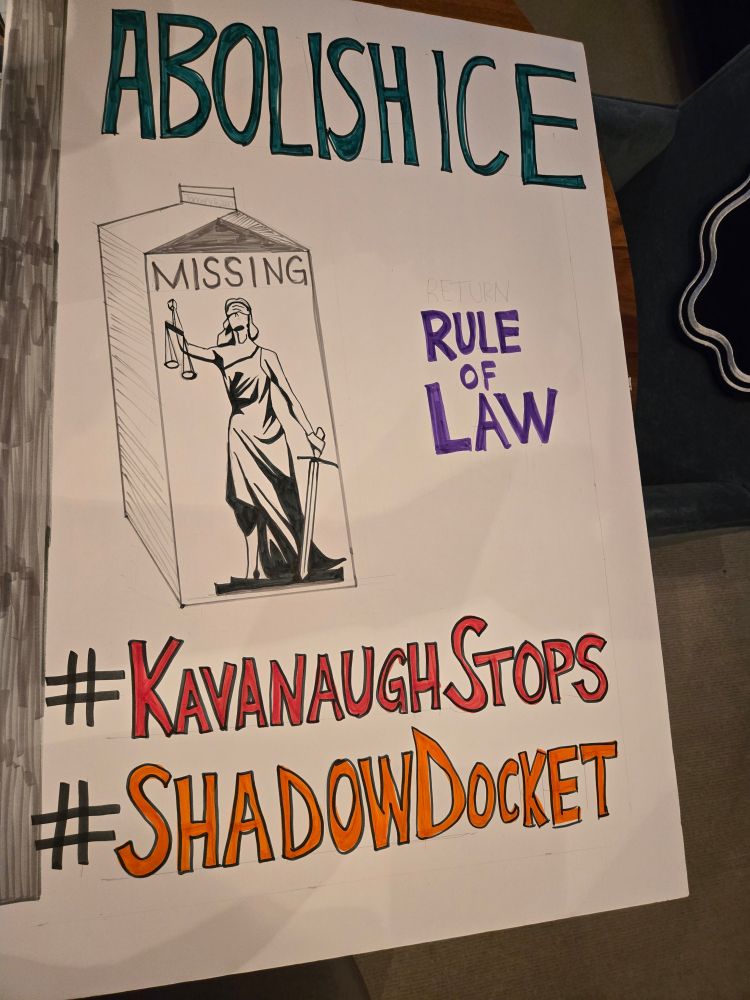 ABOLISH ICE
MISSING
RETURN
RULE
OF
LAW
#KAVANAUGHSTOPS
#SHADOWDOCKET